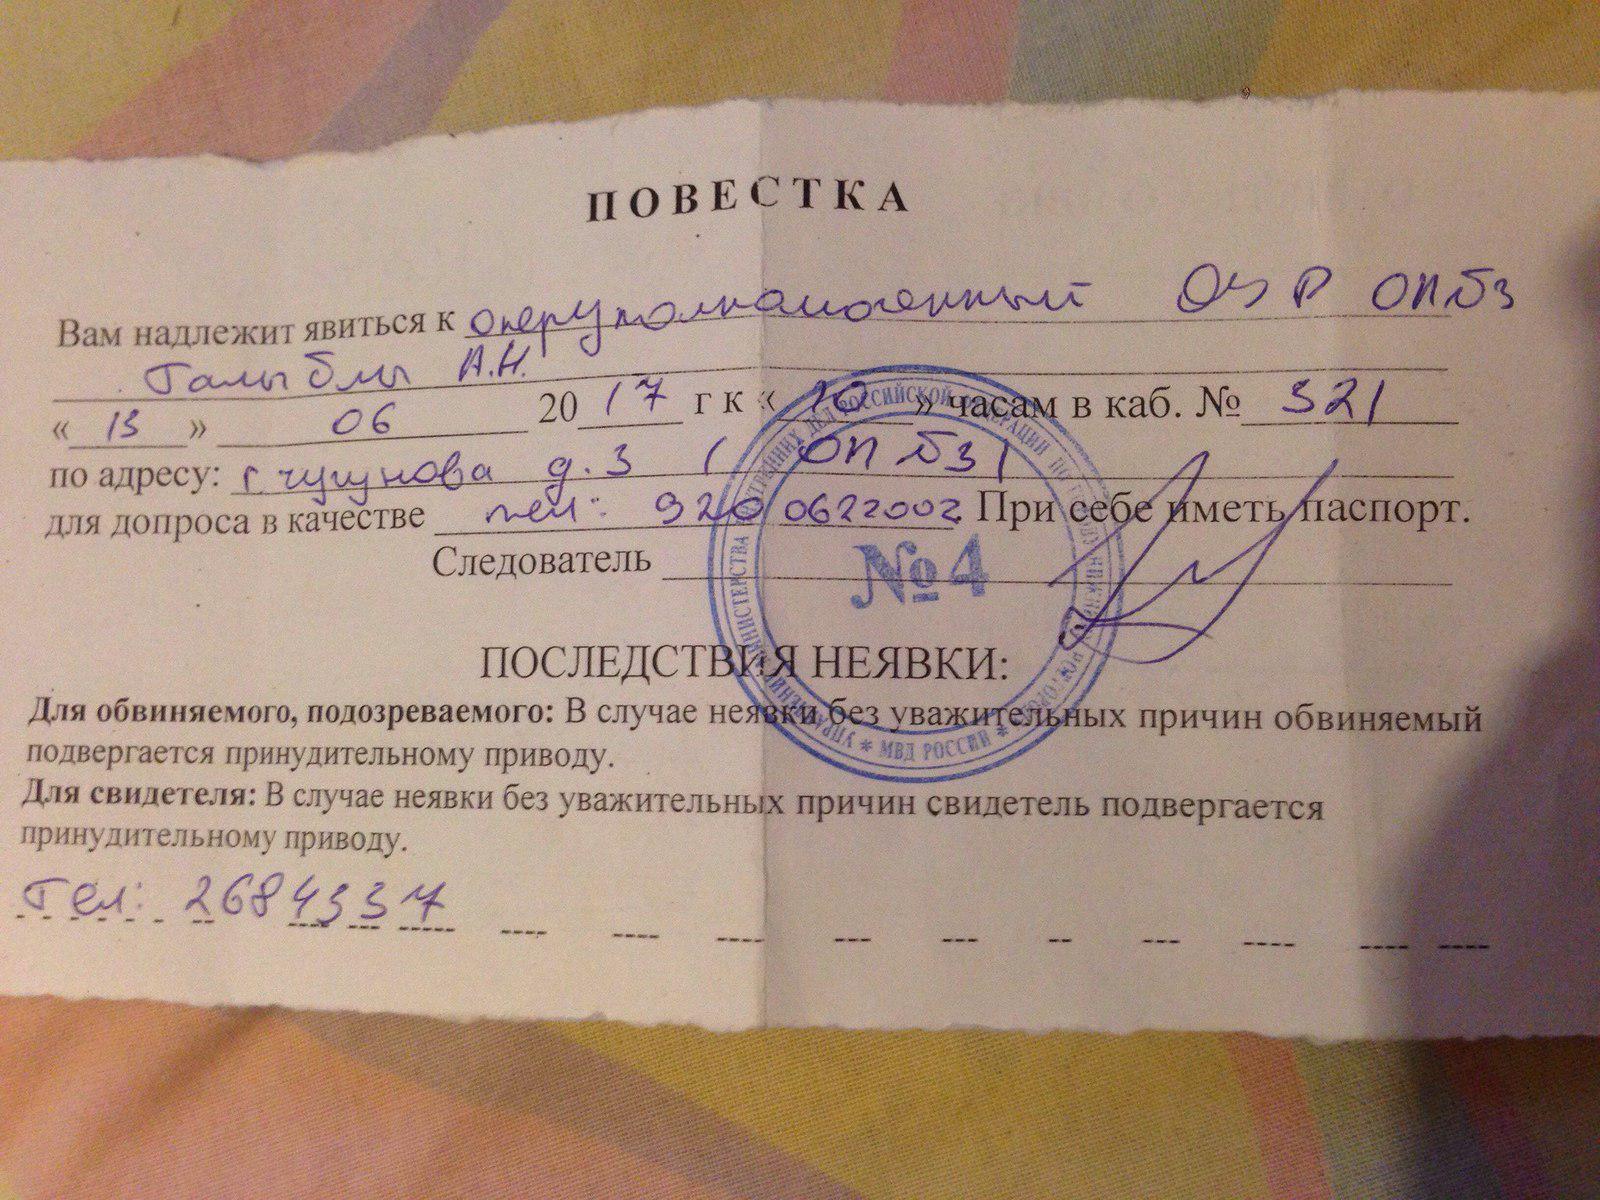 ПОВЕСТКА
Вам надлежит явиться к оперуполномоченный ОУР ОП №3
Галыблы А.Н.
« 13 » 06 2017 г к « 10 » часам в каб. № 321
по адресу: г. Чугунова д. 3 ( ОП №3 )
для допроса в качестве тел: 920 0622002 При себе иметь паспорт.
Следователь
№4
МВД РОССИИ
ПОСЛЕДСТВИЯ НЕЯВКИ:
Для обвиняемого, подозреваемого: В случае неявки без уважительных причин обвиняемый
подвергается принудительному приводу.
Для свидетеля: В случае неявки без уважительных причин свидетель подвергается
принудительному приводу.
Тел: 2684337